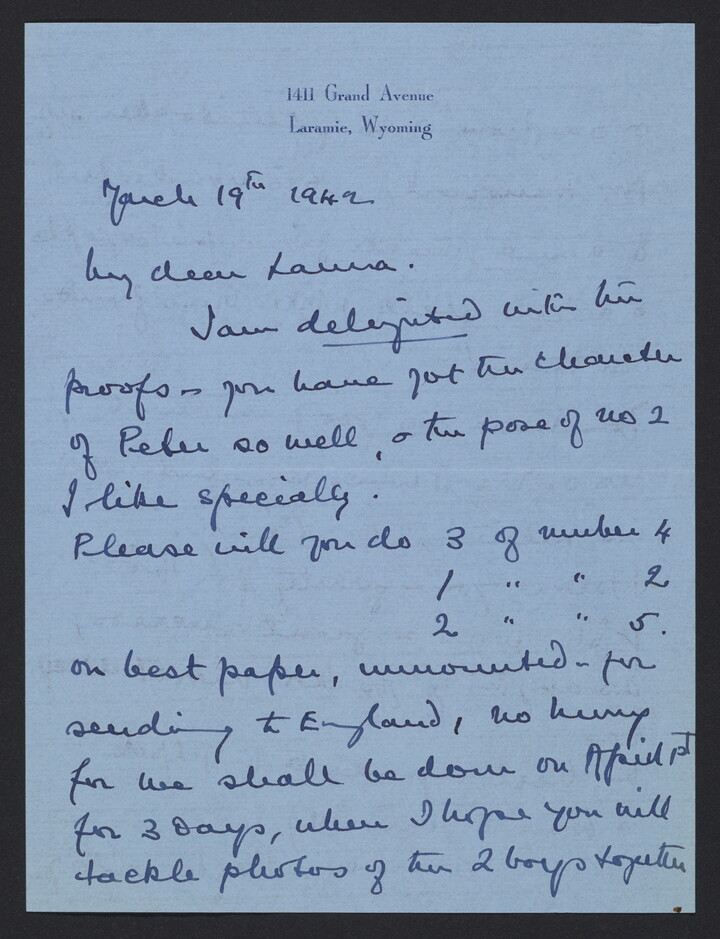 1411 Grand Avenue
Laramie, Wyoming
March 19th 1942
My dear Laura.
I am delighted with the
proofs - you have got the character
of Peter so well, & the pose of no 2
I like specially.
Please will you do 3 of number 4
1 " " 2
2 " " 5.
on best paper, unmounted - for
sending to England, no hurry
for we shall be down on April 1st
for 3 days, when I hope you will
tackle photos of the 2 boys together